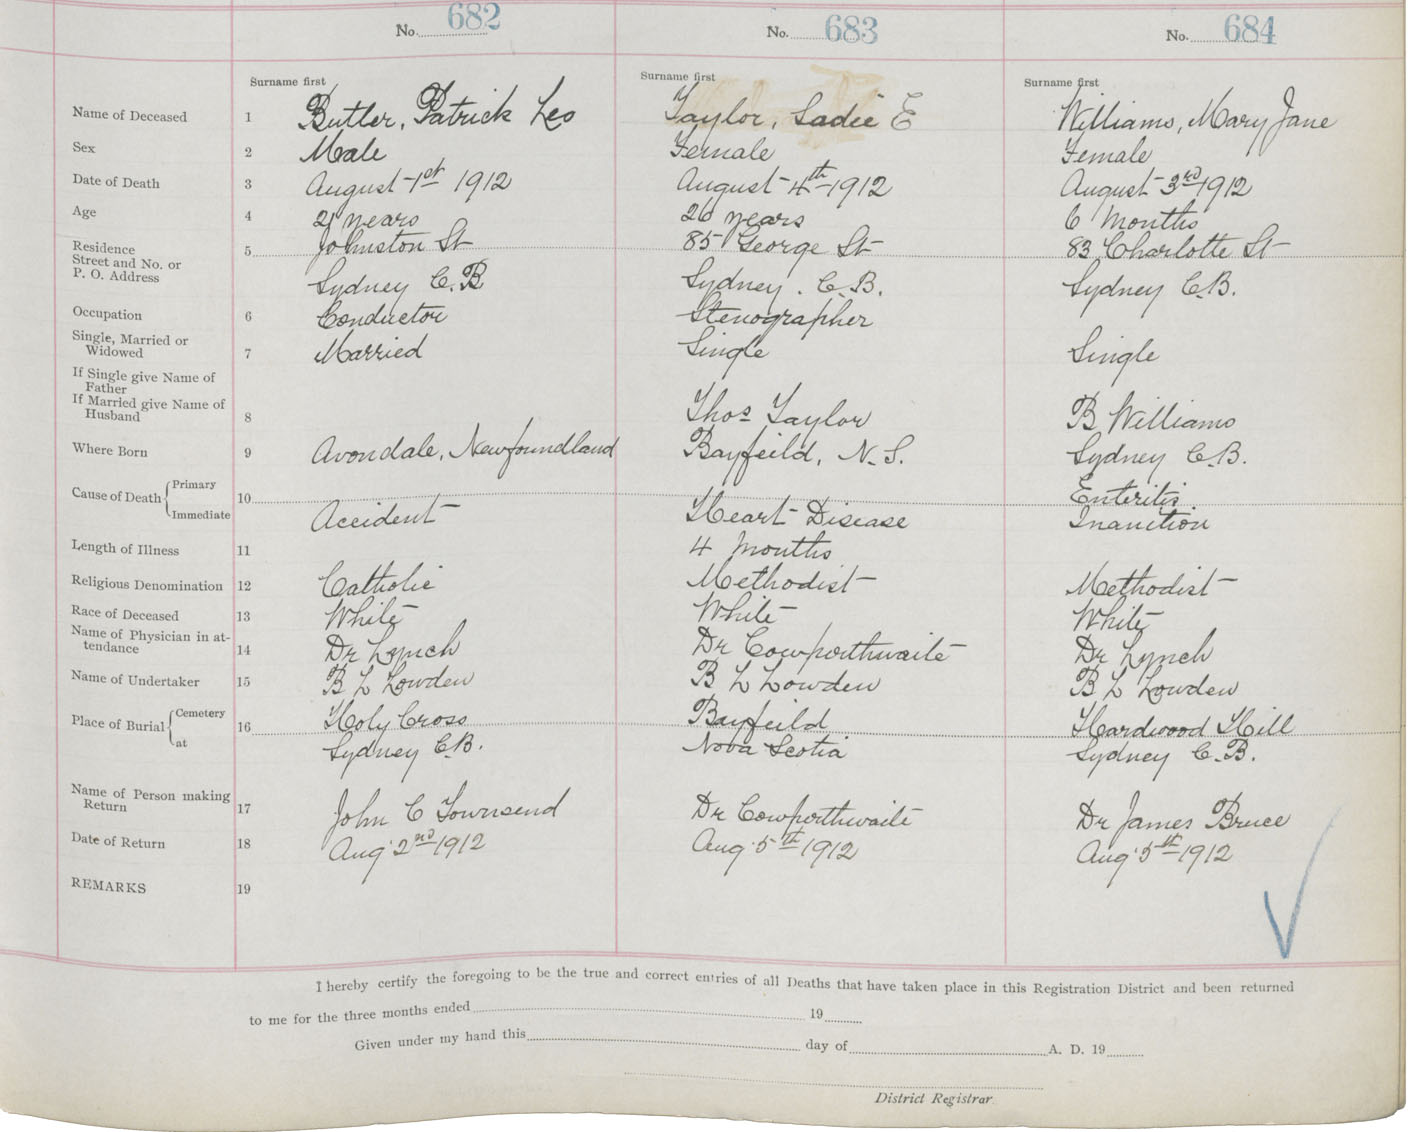 No. 682 No. 683 No. 684
Surname first Surname first Surname first
Name of Deceased 1 Butler, Patrick Leo Taylor, Sadie E Williams, Mary Jane
Sex 2 Male Female Female
Date of Death 3 August 1st 1912 August 4th 1912 August 3rd 1912
Age 4 21 years 26 years 6 Months
Residence
Street and No. or 5 Johnston St 85 George St 83 Charlotte St
P. O. Address Sydney C.B Sydney. C.B. Sydney C.B.
Occupation 6 Conductor Stenographer
Single, Married or
Widowed 7 Married Single Single
If Single give Name of
Father
If Married give Name of
Husband 8 Thos Taylor B Williams
Where Born 9 Avondale, Newfoundland Bayfeild, N.S. Sydney C.B.
Cause of Death { Primary 10 Enteritis
Immediate Accident Heart Disease Inanition
Length of Illness 11 4 Months
Religious Denomination 12 Catholic Methodist Methodist
Race of Deceased 13 White White White
Name of Physician in at-
tendance 14 Dr Lynch Dr Cowporthwaite Dr Lynch
Name of Undertaker 15 B L Lowden B L Lowden B L Lowden
Place of Burial { Cemetery 16 Holy Cross Bayfeild Hardwood Hill
at Sydney C.B. Nova Scotia Sydney C.B.
Name of Person making
Return 17 John C Townsend Dr Cowporthwaite Dr James Bruce
Date of Return 18 Aug 2nd 1912 Aug 5th 1912 Aug 5th 1912
REMARKS 19
I hereby certify the foregoing to be the true and correct entries of all Deaths that have taken place in this Registration District and been returned
to me for the three months ended 19
Given under my hand this day of A. D. 19
District Registrar.